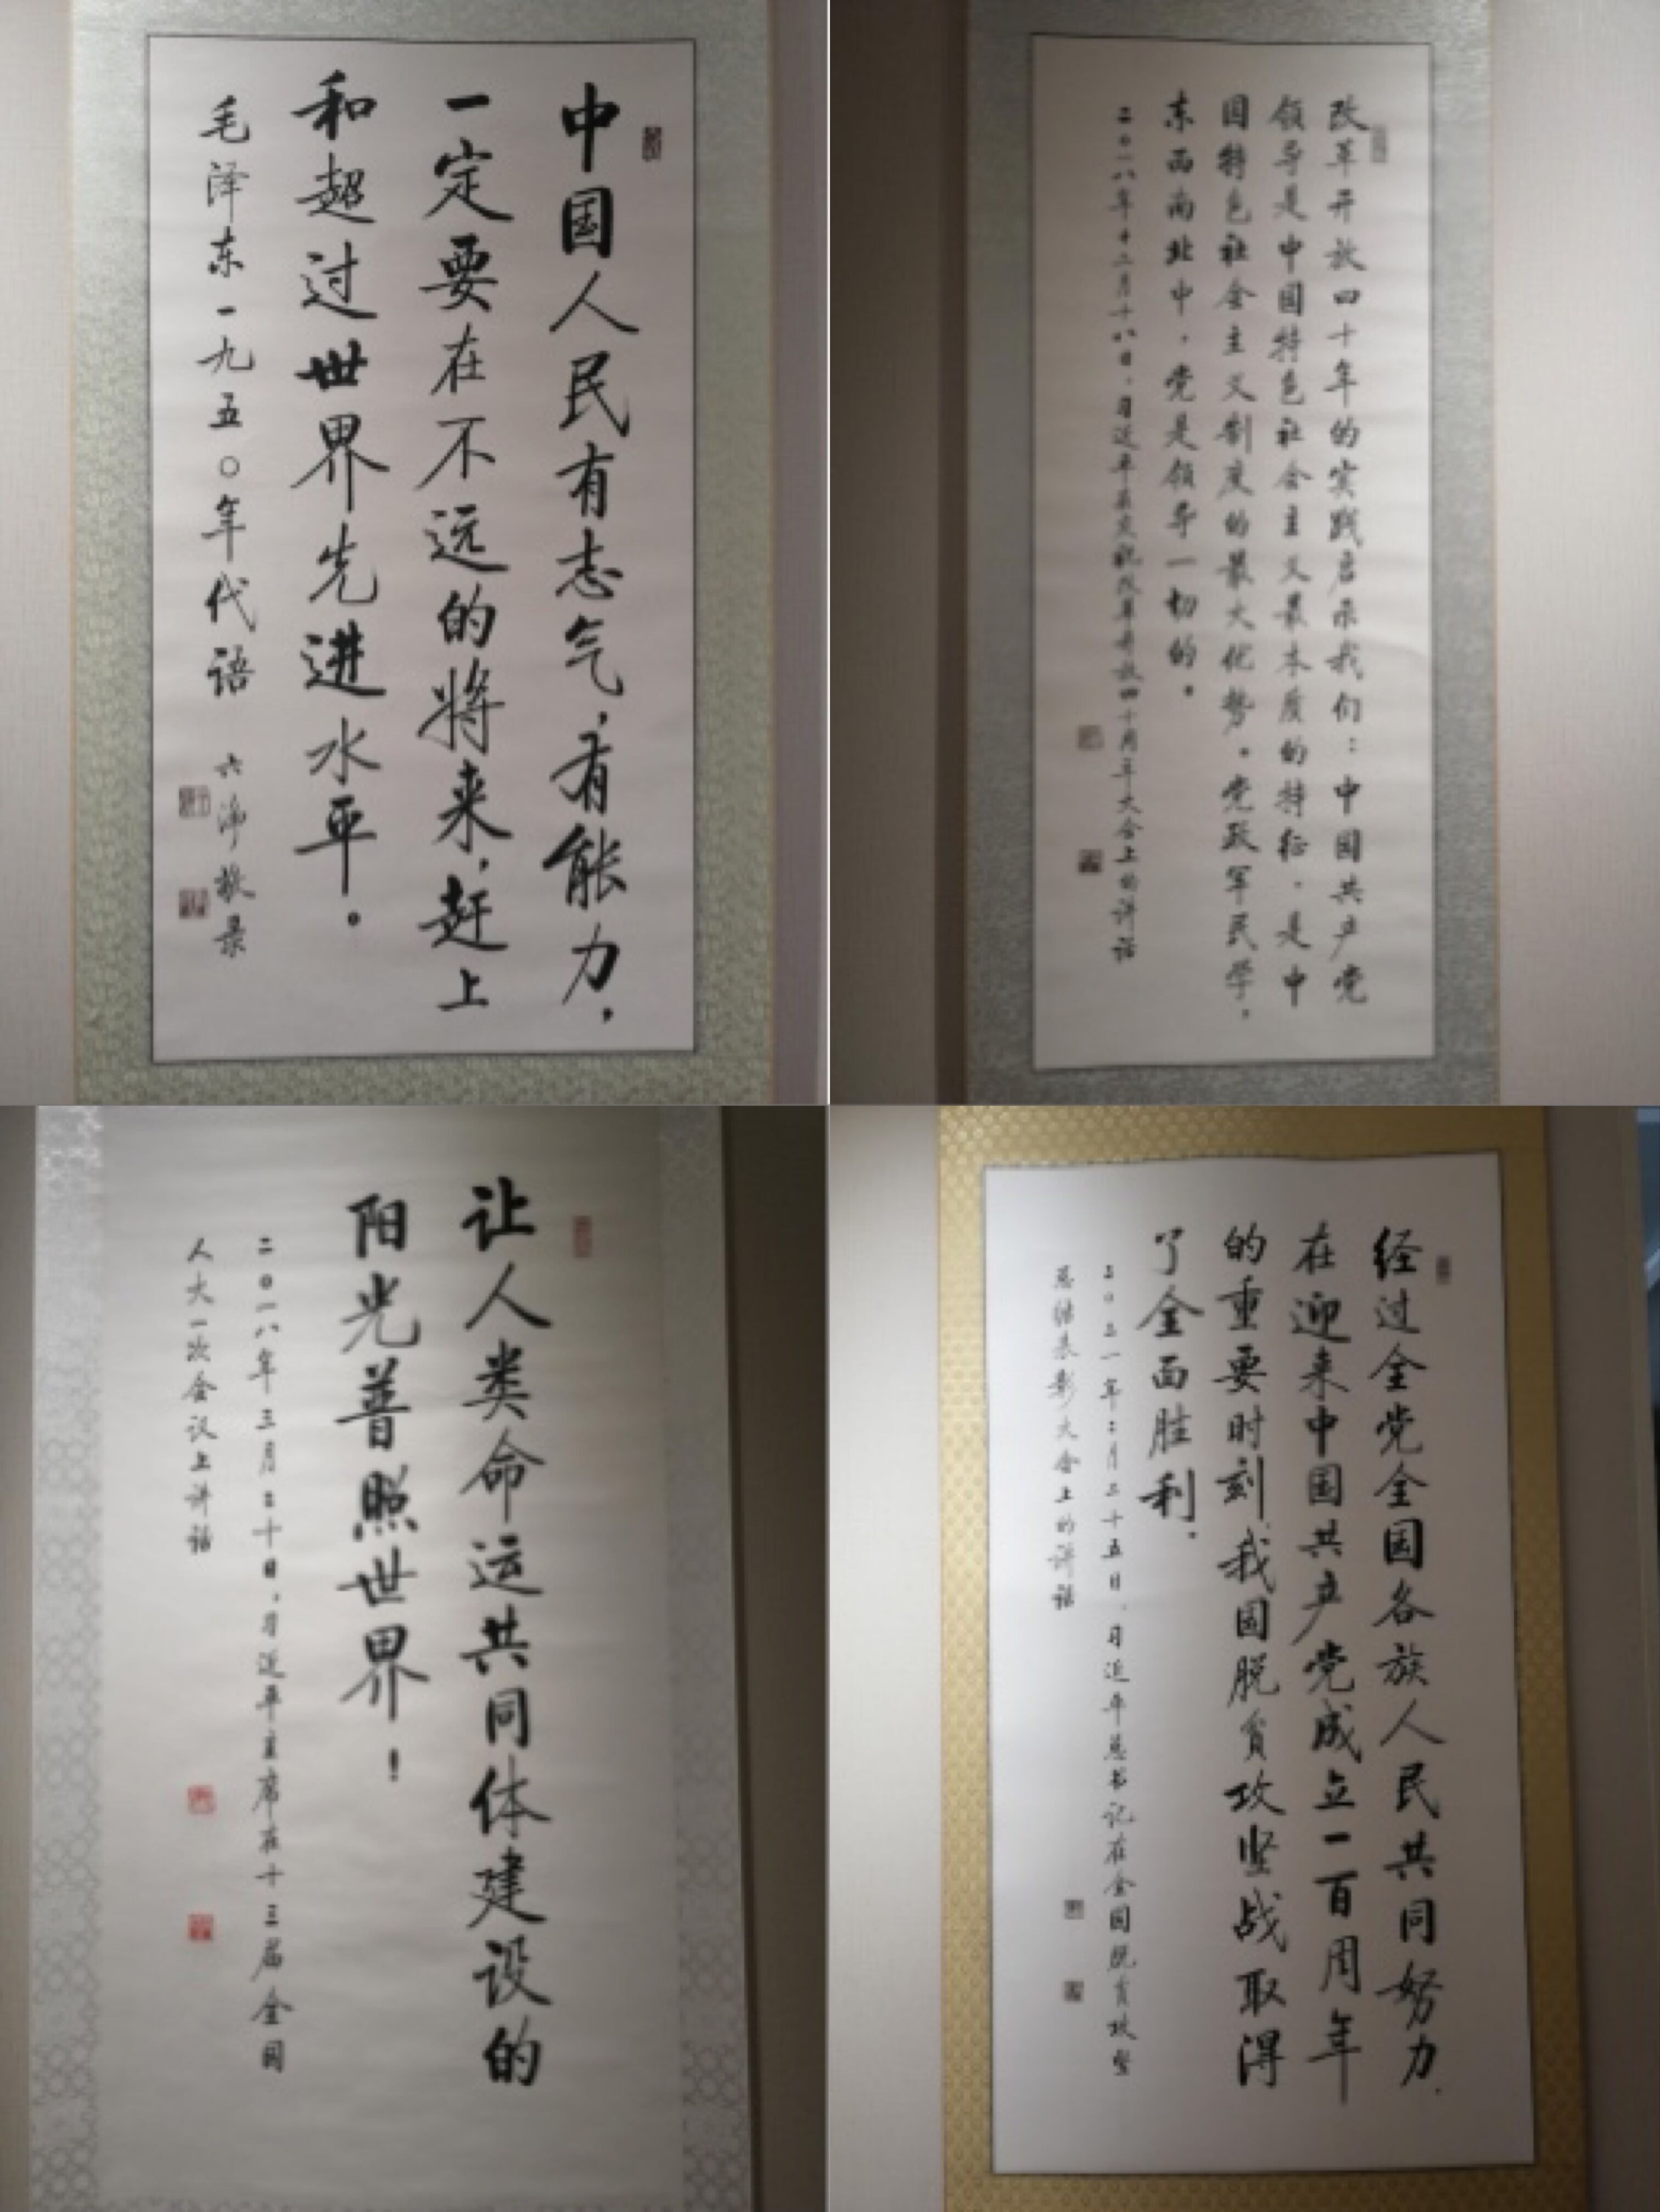 中国人民有志气，有能力，
一定要在不远的将来，赶上
和超过世界先进水平。
毛泽东一九五〇年代语 六净敬录
改革开放四十年的实践启示我们：中国共产党
领导是中国特色社会主义最本质的特征，是中
国特色社会主义制度的最大优势。党政军民学，
东西南北中，党是领导一切的。
二〇一八年十二月十八日，习近平在庆祝改革开放四十周年大会上的讲话
让人类命运共同体建设的
阳光普照世界！
二〇一八年三月二十日，习近平主席在十三届全国
人大一次会议上讲话
经过全党全国各族人民共同努力，
在迎来中国共产党成立一百周年
的重要时刻，我国脱贫攻坚战取得
了全面胜利，
二〇二一年二月二十五日，习近平总书记在全国脱贫攻坚
总结表彰大会上的讲话